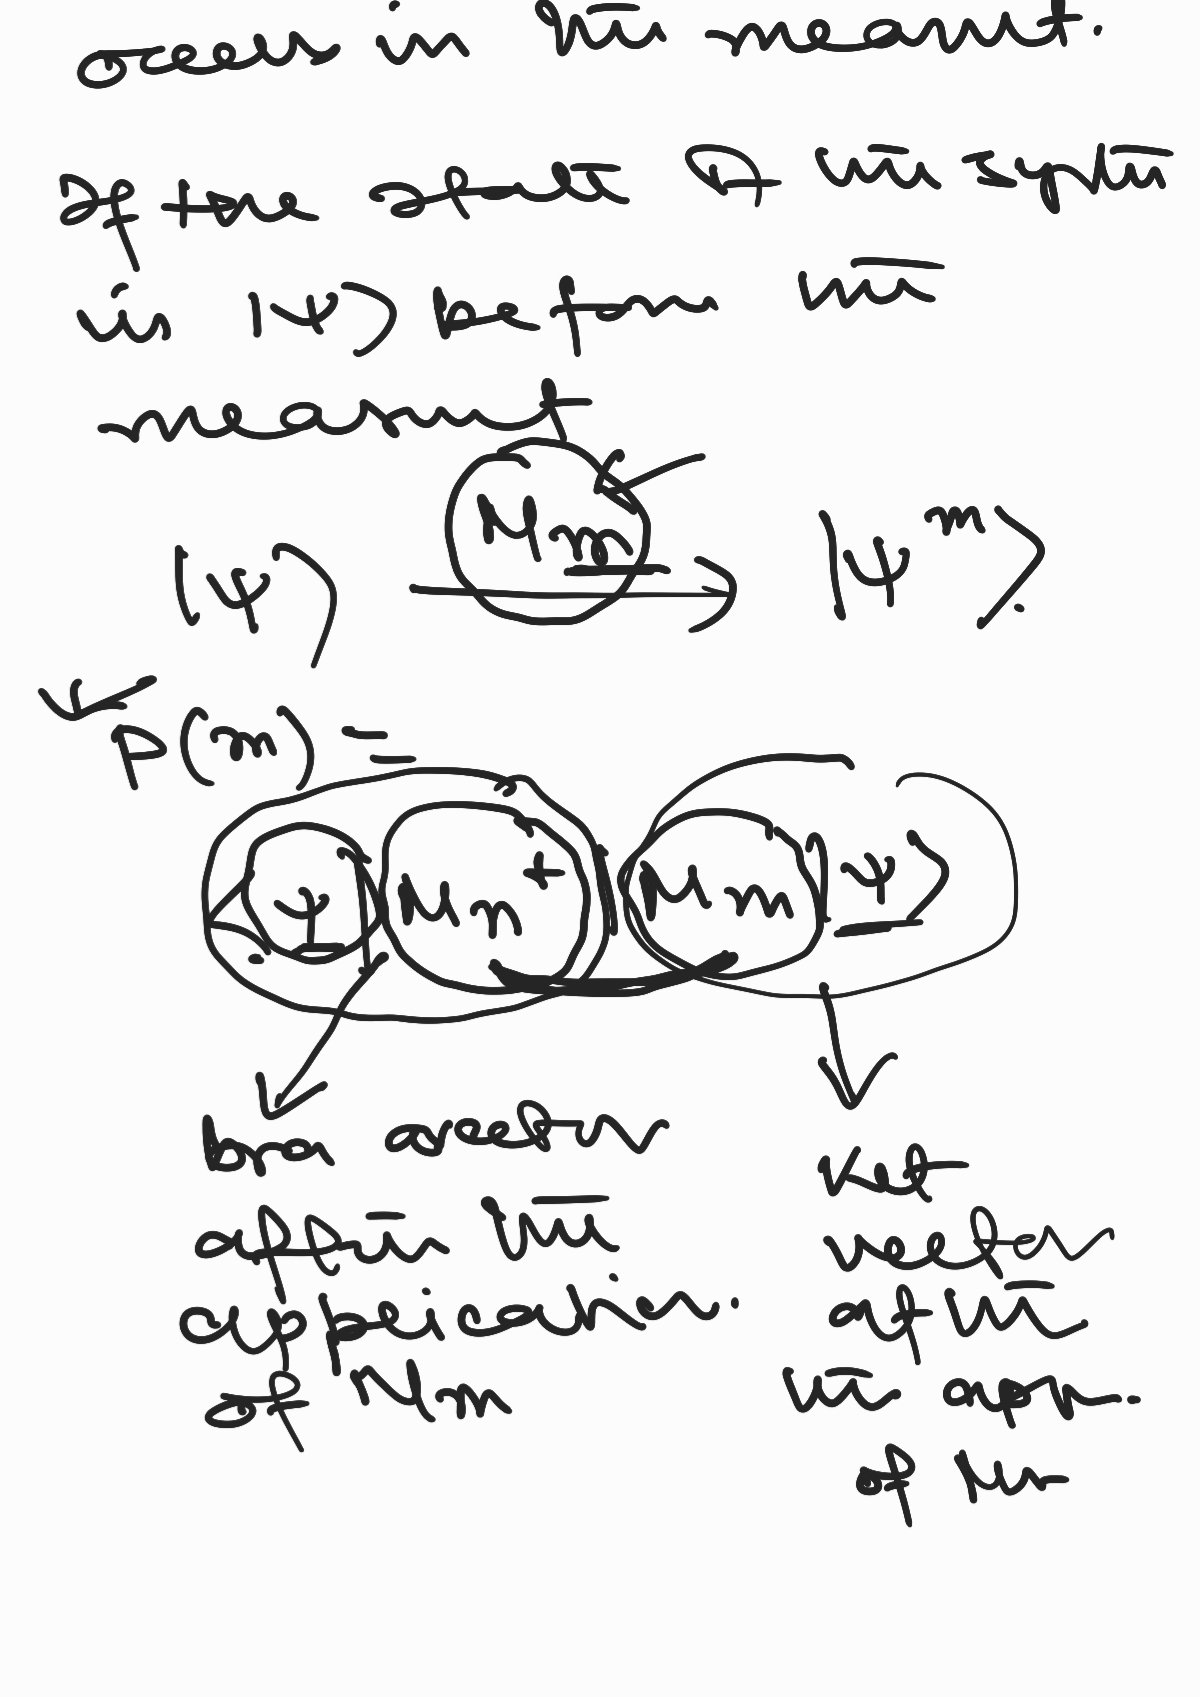 occur in the measmt.
If the state of the system
is |ψ⟩ before the
measmt
M_m
|ψ⟩ → |ψ^m⟩.
P(m) =
⟨ψ| M_m^† M_m |ψ⟩
bra vector
after the
application
of M_m
Ket
vector
after
the app.
of M_m